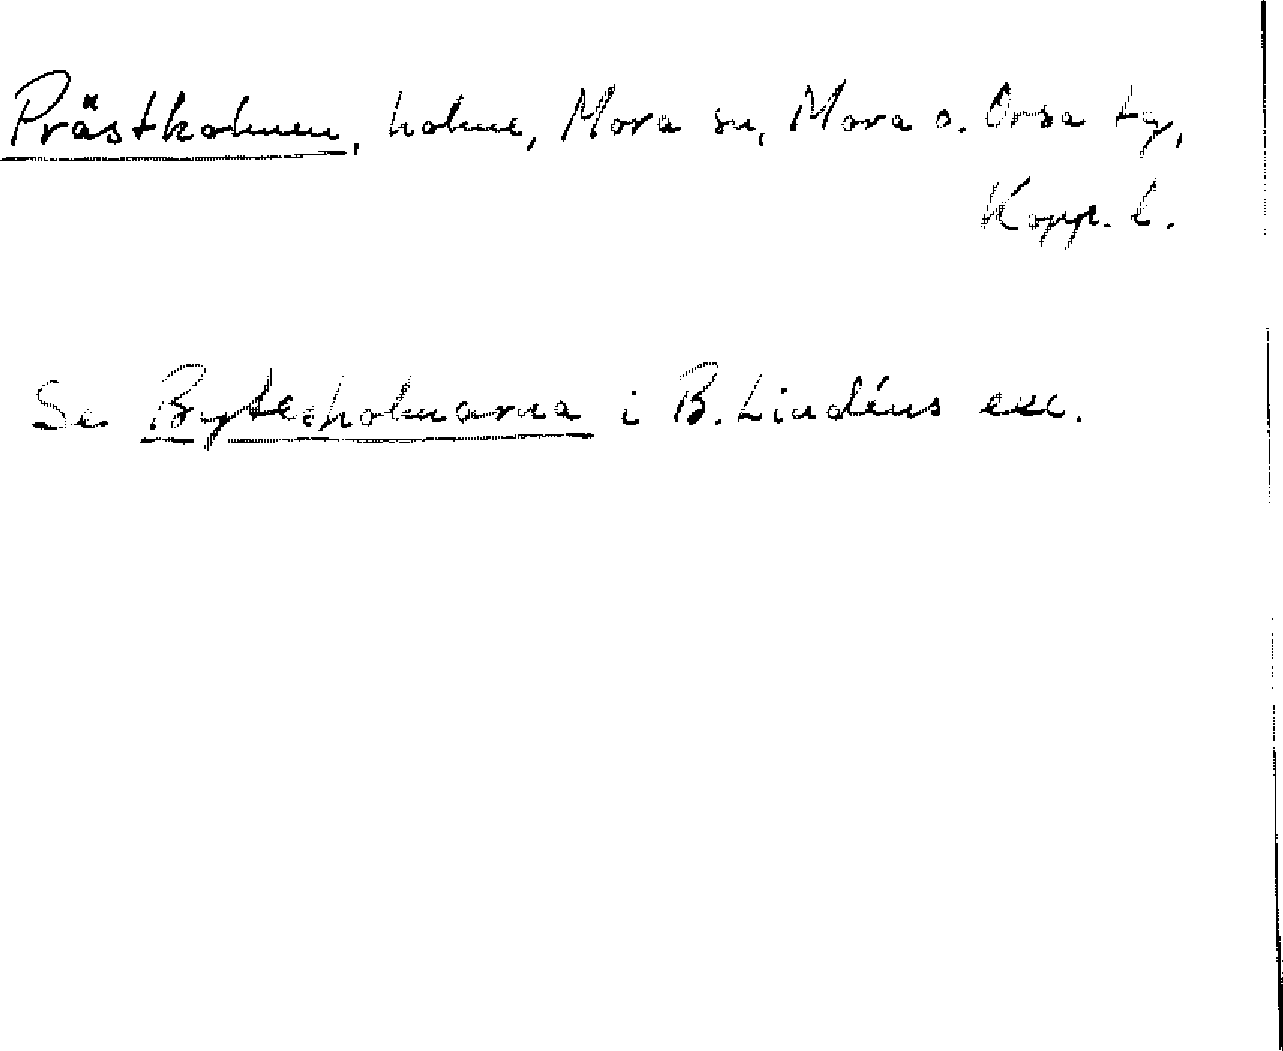 Prästholmen, holme, Mora sn, Mora o. Orsa tg,
Kopp. l.
Se Bytesholmarna i B. Lindéns exc.